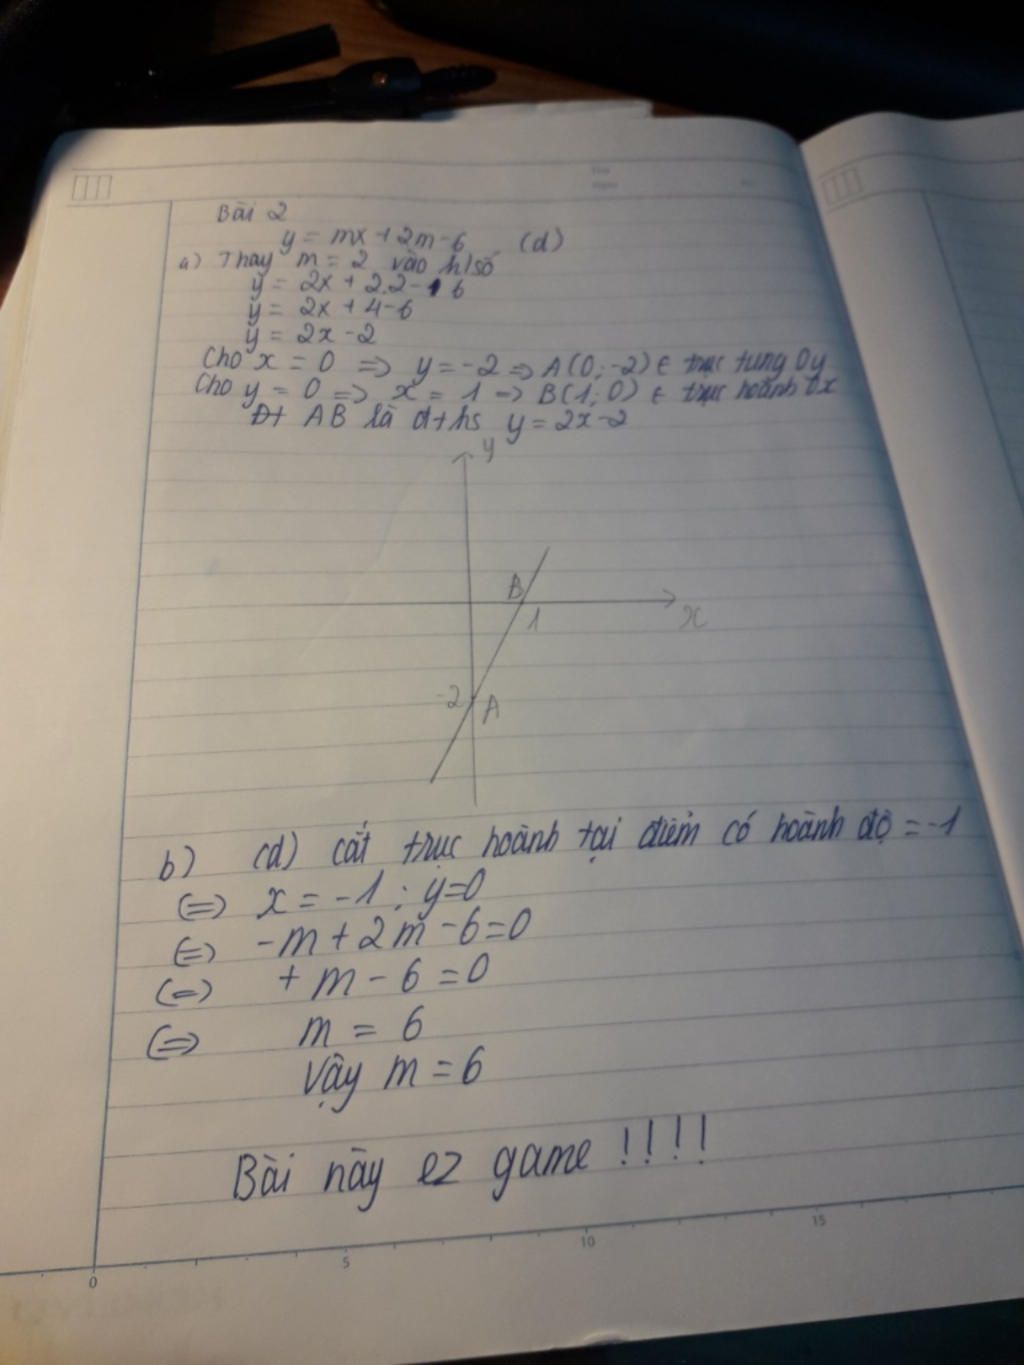 Bài 2
y = mx + 2m - 6 (d)
a) Thay m = 2 vào h/số
y = 2x + 2.2 - 6
y = 2x + 4 - 6
y = 2x - 2
Cho x = 0 => y = -2 => A(0; -2) ∈ trục tung Oy
Cho y = 0 => x = 1 => B(1; 0) ∈ trục hoành Ox
Đt AB là đths y = 2x - 2
y
B
1
x
-2
A
b) (d) cắt trục hoành tại điểm có hoành độ = -1
(=) x = -1 ; y = 0
(=) -m + 2m - 6 = 0
(=) + m - 6 = 0
(=) m = 6
Vậy m = 6
Bài này ez game !!!!
0 5 10 15